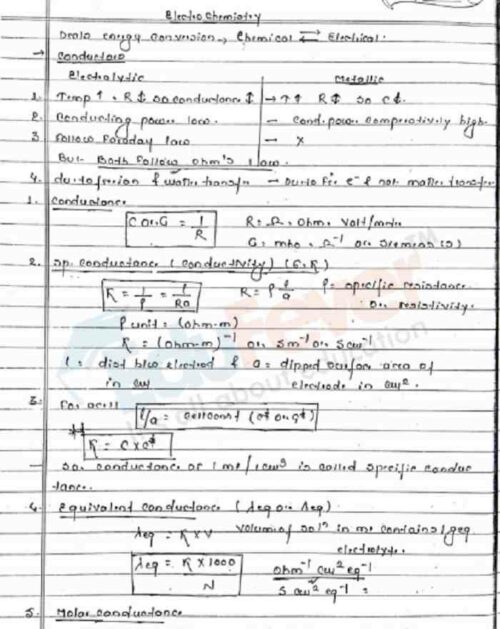 Electro Chemistry
Deals energy conversion → Chemical ⇄ Electrical.
→ Conductors
Electrolytic Metallic
1. Temp ↑ , R ↓ so conductance ↑ → ↑ ↑ R ↑ so C ↓.
2. Conducting power low. - Cond. power comparatively high.
3. Follow Faraday law - x
But Both follow ohm's law.
4. due to free ion & matter transfer - Due to free e⁻ & not matter transfer
1. Conductance
C or G = 1/R R = Ω, Ohm, Volt/
G = mho, Ω⁻¹ or Siemens (S)
2. Sp. conductance (Conductivity) (K)
K = 1/ρ = l/Ra R = ρ l/a ρ = specific resistance
or resistivity.
ρ unit = (ohm-m)
K = (ohm-m)⁻¹ or Sm⁻¹ or Scm⁻¹
l = dist b/w electrod & a = dipped surface area of
in cm electrode in cm².
3. For a cell l/a = cell const (c* or G*)
K = C x c*
- Sol conductance of 1 ml / 1 cm³ is called specific conduc
tance.
4. Equivalent conductance (λeq or Λeq)
Λeq = K x V Volume of solⁿ in ml contains 1 geq
electrolyte.
Λeq = K x 1000 / N ohm⁻¹ cm² eq⁻¹
S cm² eq⁻¹
5. Molar conductance
Edufever
all about education
TM